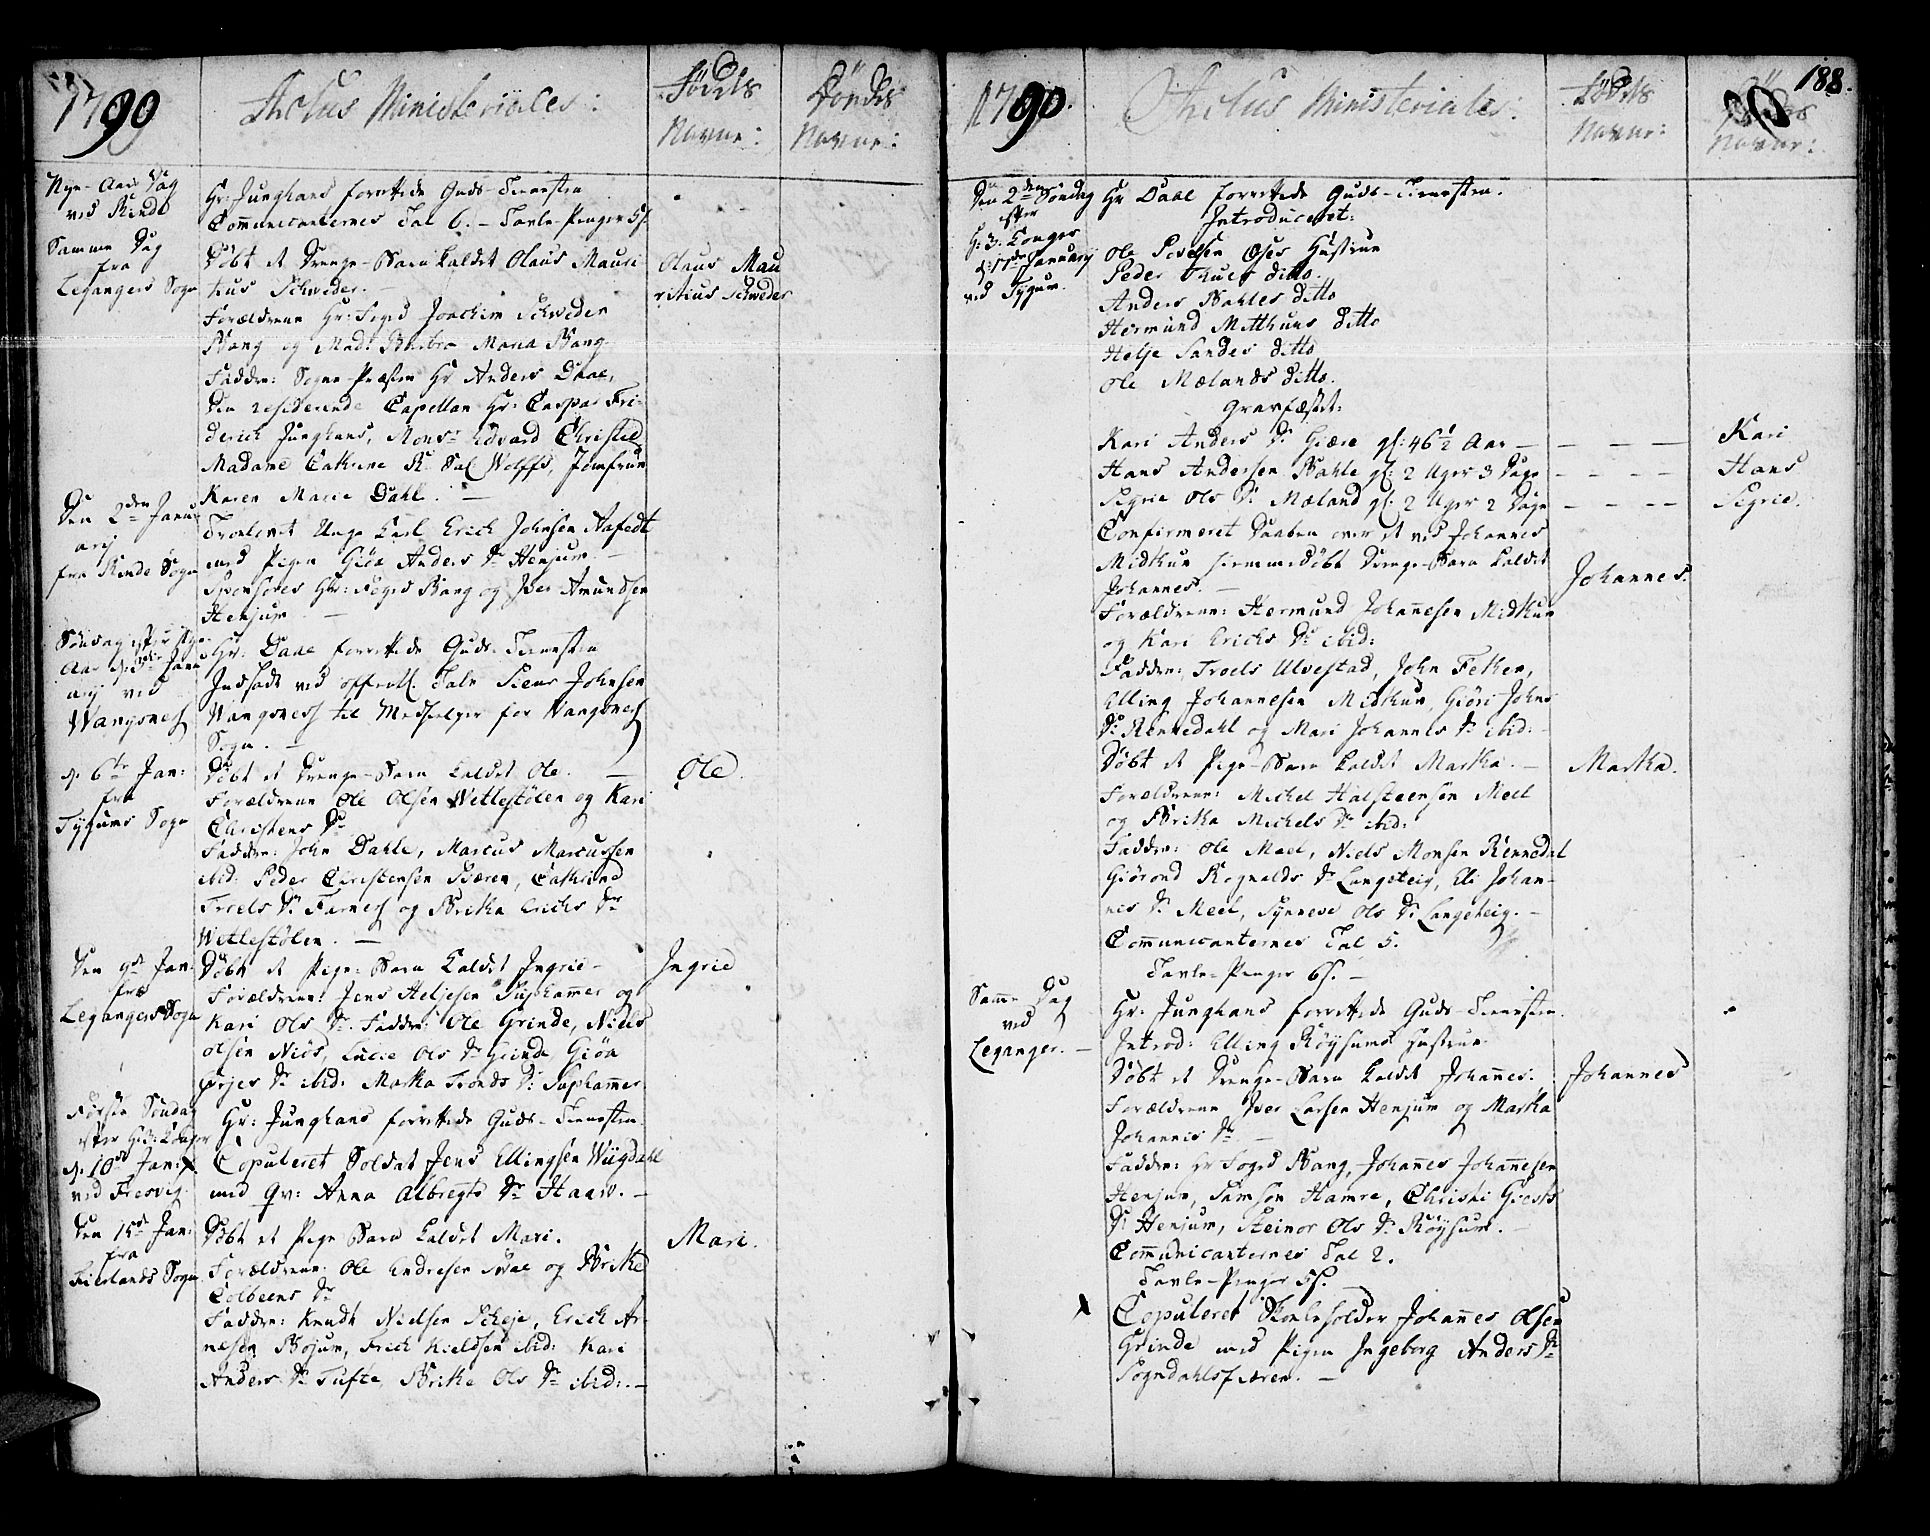 1790
Actus Ministeriales:
Fødtes
Navne:
Dødes
Navne:
Nye-Aars Dag
ved Rinde
Hr: Junghans forrettede Guds-Tienesten
Communicanternes Tal 6. – Tavle-Penger 5 s.
Samme Dag
fra
Leganger Sogn
Døbt et Drenge-Barn kaldet Olaus Mauri-
tius Schweder. –
Olaus Mau
ritius Schweder
Forældrene Hr: Foged Joachim Schweder
Bang og Mad: Barbra Maria Bang
Faddre: Sogne-Præsten Hr Anders Daae,
Den residerende Capellan Hr: Caspar Fri-
derich Junghans, Monsr Edvard Christie
Madame Cathrine Sal Wolffs, Jomfrue
Karen Marie Dahl. –
Den 2den Janu-
arij
fra Rinde Sogn
Trolovet Unge Karl Erich Johnsen Aafedt
med Pigen Giøa Anders Dr Henjum. –
Sponsores Hr: Foged Bang og Iver Amundsen
Henjum –
Søndag efter Nye
Aar d: 3die Janu
arij ved
Wangsnes
Hr: Daae forrettede Guds-Tienesten
Indsadt ved offentl. Tale Siens Johnsen
Wangsnes til Medhielper for Wangsnes
Sogn. –
d: 6te Jan:
fra
Tygums Sogn
Døbt et Drenge-Barn kaldet Ole. –
Ole.
Forældrene Ole Olsen Wetlestølen og Kari
Christens Dr
Faddre: John Dahle, Marcus Marcussen
ibid: Peder Christensen Bæren, Cathrine
Troels Dr Farnes og Brita Erichs Dr
Wetlestølen. –
Den 9de Jan:
fra
Leganger Sogn
Døbt et Pige-Barn kaldet Ingrie –
Ingrid
Forældrene: Jens Heljesen Suphammer og
Kari Ols Dr. Faddre: Ole Grinde, Niels
Olsen Niøs, Lucie Ols Dr Grinde Giøa
Børjes Dr ibid: Martha Tronds Dr Suphammer
Første Søndag
efter H: 3: Konger
d: 10de Jan:
ved Fresvig
Hr: Junghans forrettede Guds-Tienesten.
Copuleret Soldat Jens Ellingsen Wiigdahl
med Qv: Anna Albregts Dr Haaw. –
Den 15de Jan:
fra
Fierlands Sogn
Døbt et Pige Barn kaldet Mari.
Mari.
Forældrene: Ole Endresen Mæl og Brithe
Colbeens Dr
Faddre: Knudt Nielsen Scheje, Erich Ar-
nesen Bojum, Frich Kieldsen ibid: Kari
Anders Dr Tufte, Brithe Ols Dr ibid: –
188.
1790.
Actus Ministeriales:
Fødtes
Navne:
Dødes
Navne:
Den 2den Søndag
efter
H: 3: Konger
d: 17de Januarij
ved Tygum.
Hr Daae forrettede Guds-Tienesten.
Introduceret:
Ole Povelsen Øses Hustrue
Peder Thues ditto.
Anders Bahles ditto
Hermund Mitthuns ditto
Helje Sandes ditto
Ole Mælands ditto.
Gravfæstet:
Kari Anders Dr Giære gl: 46 1/2 Aar – – – –
Kari
Hans Andersen Bahle gl: 2 Uger 3 Dage – – – –
Hans
Segrie Ols Dr Mæland gl: 2 Uger 2 Dage – – – –
Segrie.
Confirmeret Daaben over et ved Johannes
Midthun hiemmedøbt Drenge-Barn kaldet
Johannes. –
Johannes.
Forældrene: Hermund Johannesen Midthun
og Kari Erichs Dr ibid:
Faddre: Troels Ulvestad, John Fetken,
Elling Johannesen Midthun, Giøri Johns
Dr Rennedahl og Mari Johannes Dr ibid: –
Døbt et Pige-Barn kaldet Martha. –
Martha.
Forældrene: Michel Halsteensen Meel
og Britha Michels Dr ibid:
Faddre: Ole Meel, Niels Monsen Rennedal
Giørond Rognalds Dr Langeteig, Eli Johan-
nes Dr Meel, Synneve Ols Dr Langeteig. –
Communicanternes Tal 5.
Tavle-Penger 6 s. –
Samme Dag
ved
Leganger. –
Hr: Junghans forrettede Guds-Tienesten.
Introd: Elling Røysums Hustrue
Døbt et Drenge-Barn kaldet Johannes.
Johannes
Forældrene Iver Larsen Henjum og Martha
Johannis Dr –
Faddre: Hr Foged Bang, Johannes Johannesen
Henjum, Samson Hamre, Christi Giests
Dr Henjum, Steinor Ols Dr Røysum. –
Communicanternes Tal 2.
Tavle-Penger 5 s. –
Copuleret Skoleholder Johannes Olsen
Grinde med Pigen Ingeborg Anders Dr
Sogndahlsfæren. –